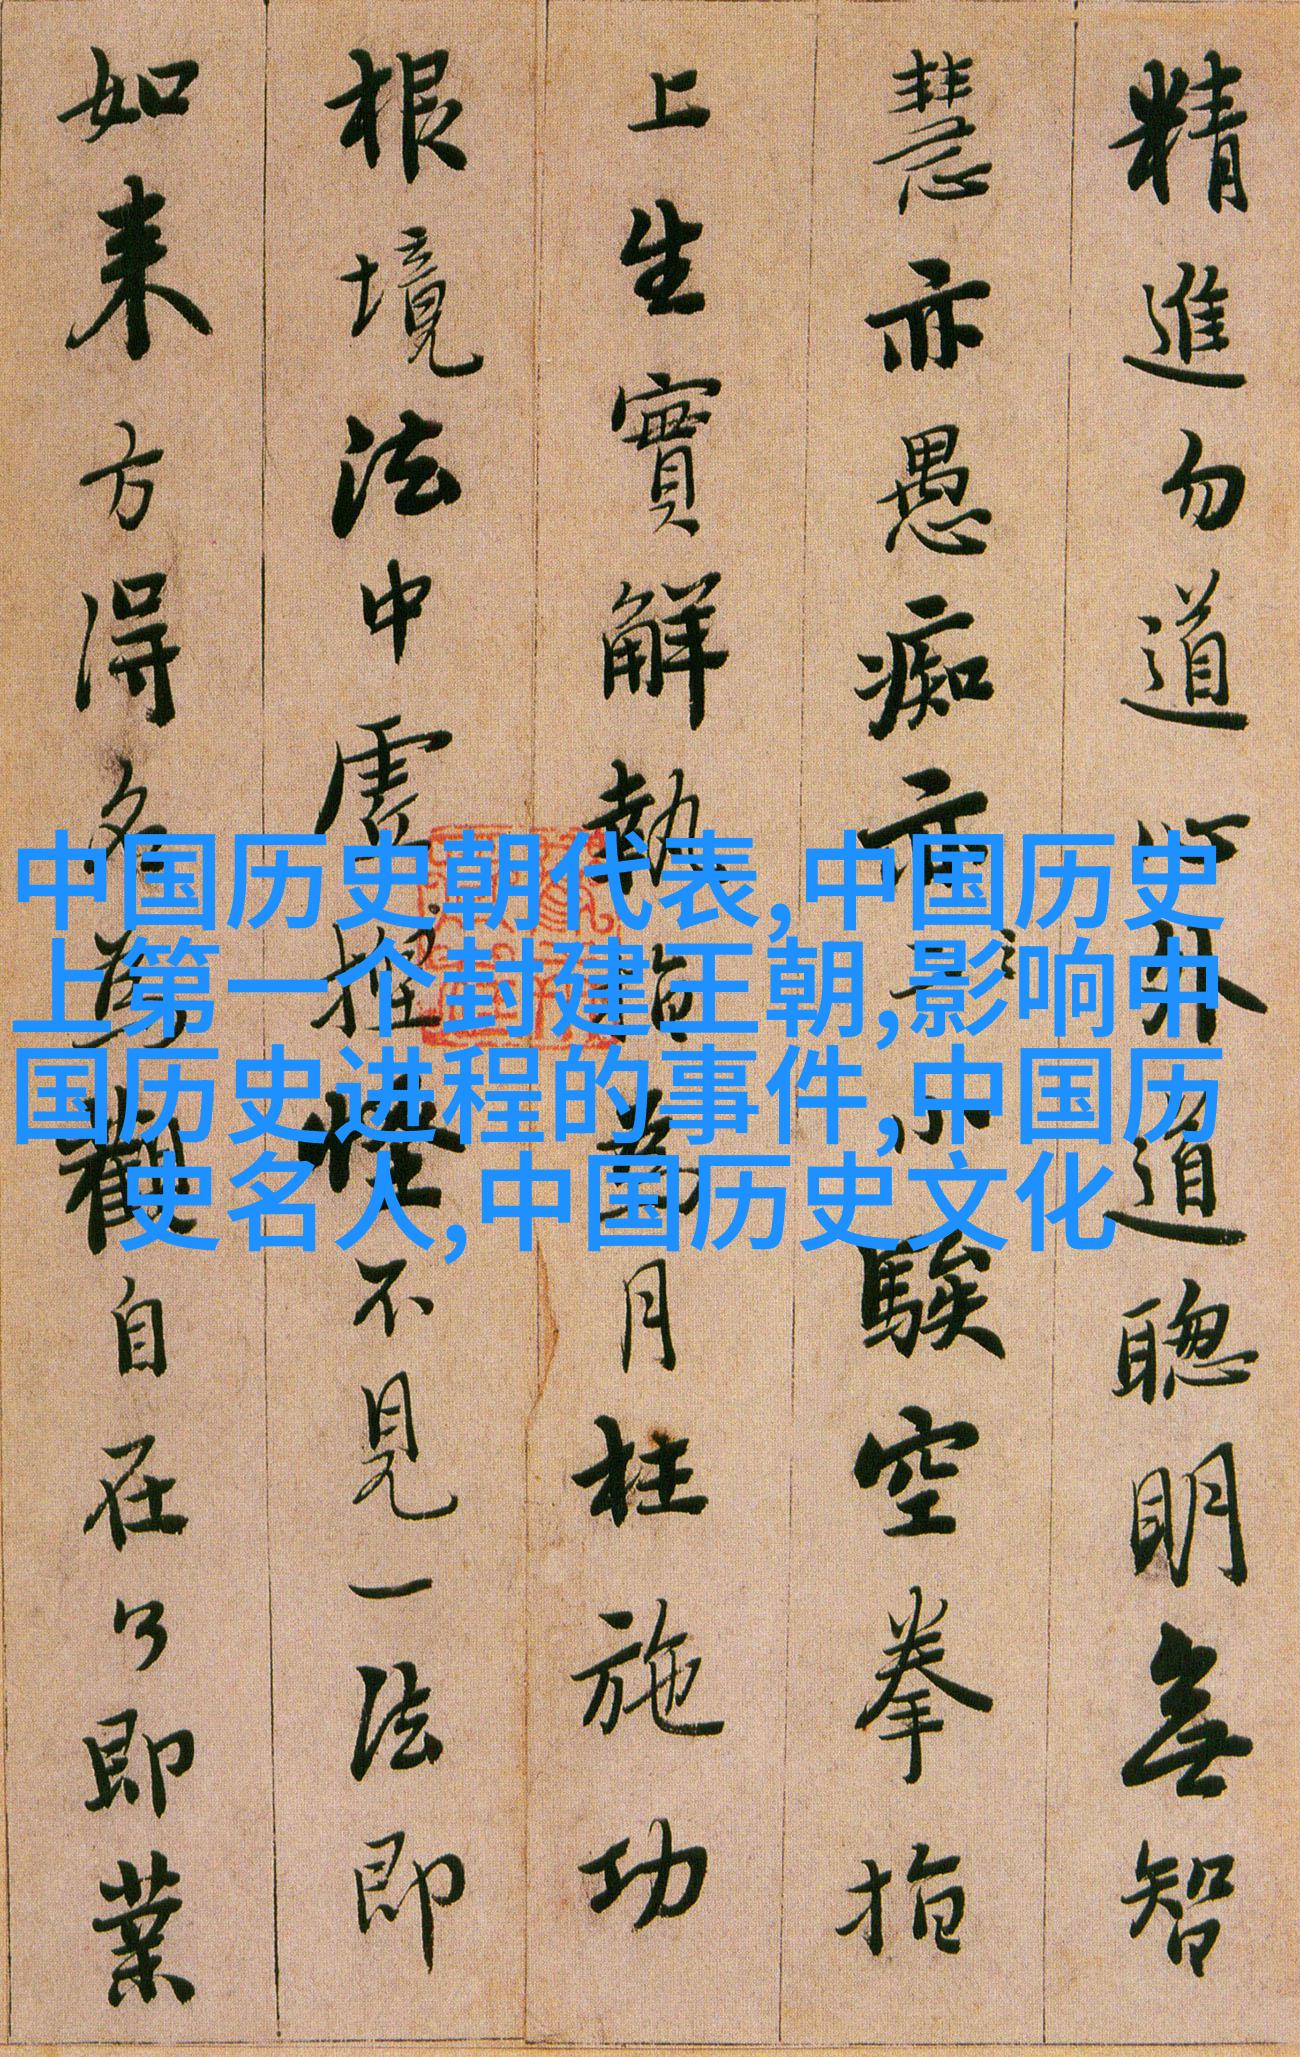 精進勿道外道聰明無智
慧亦愚痴亦小騃空拳指
上生實解執指為月枉施功
根境法中虛捏怪不見一法即
如来方得名為觀自在了即業
中国历史朝代表,中国历史
上第一个封建王朝,影响中
国历史进程的事件,中国历
史名人,中国历史文化